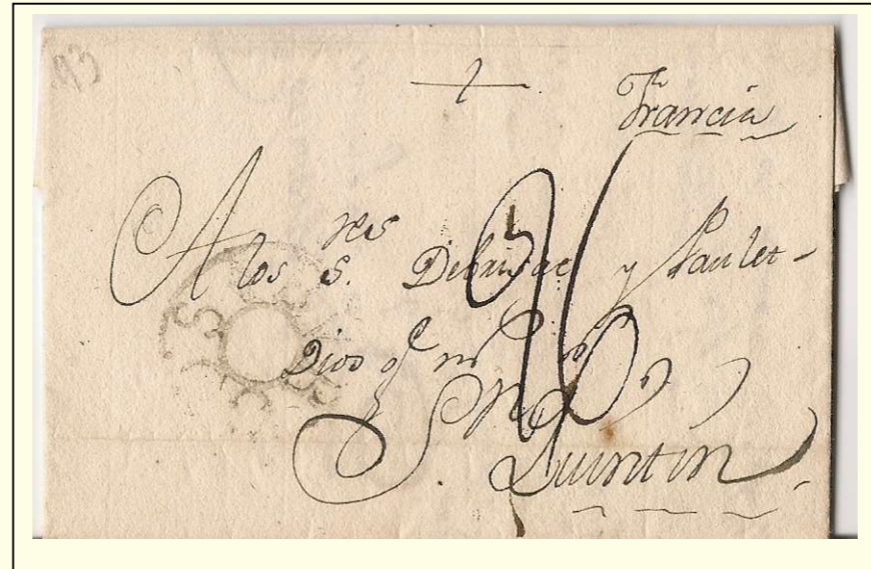 93
Francia
A los S.res Debrissac y Paulet
Dios g.
26
S. Quintin